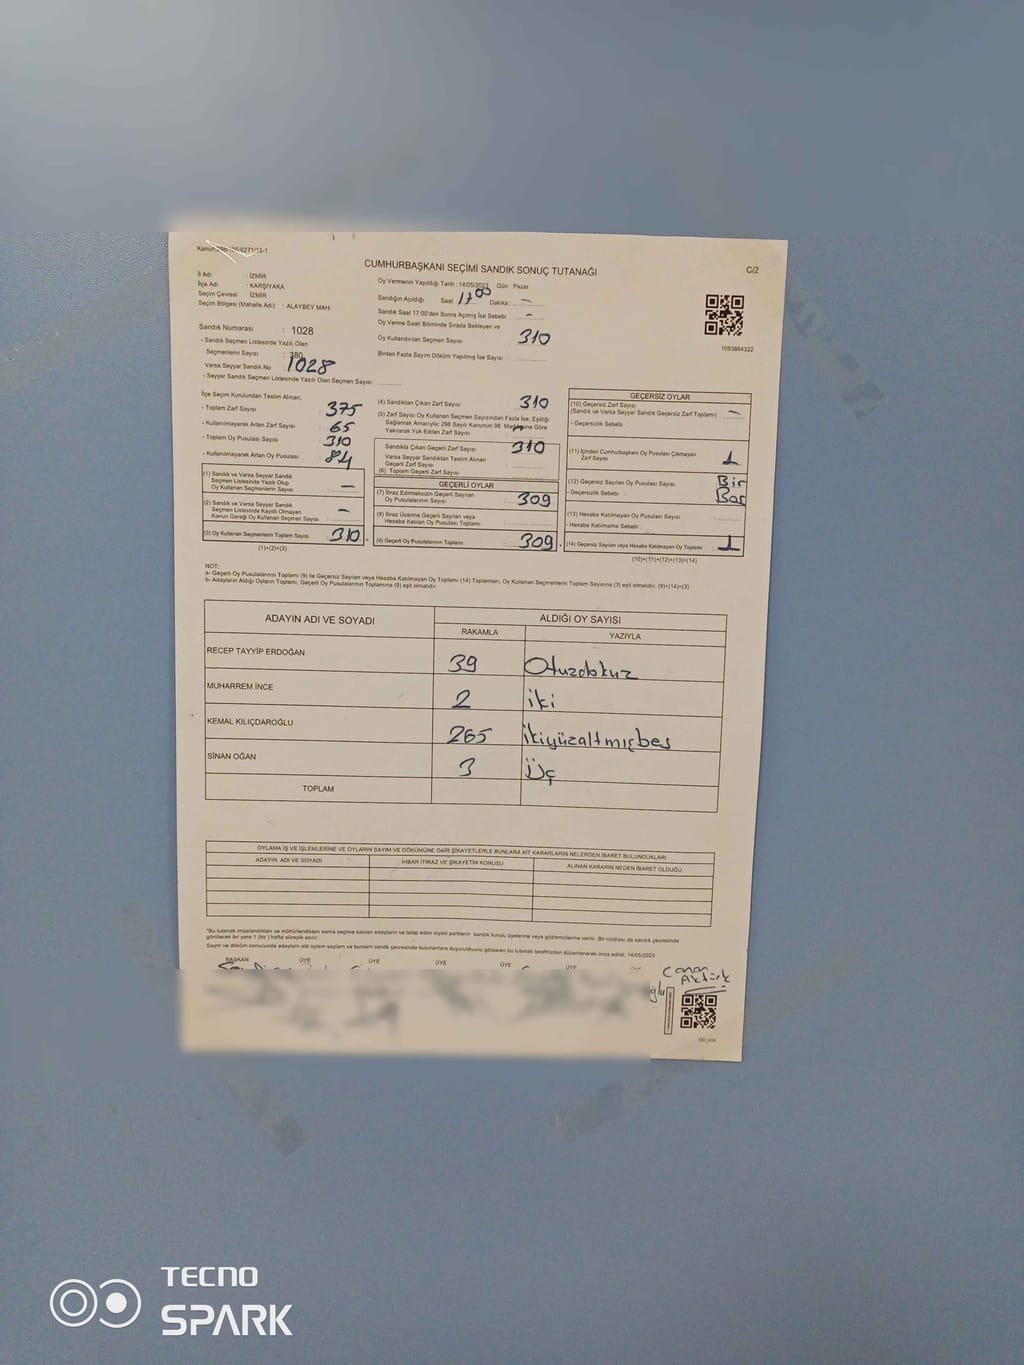 Kanun:298/105;6271/13-1
CUMHURBAŞKANI SEÇİMİ SANDIK SONUÇ TUTANAĞI
C/2
İl Adı : İZMİR
İlçe Adı : KARŞIYAKA
Seçim Çevresi : İZMİR
Seçim Bölgesi (Mahalle Adı) : ALAYBEY MAH.
Sandık Numarası : 1028
- Sandık Seçmen Listesinde Yazılı Olan
Seçmenlerin Sayısı : 380
Varsa Seyyar Sandık No : 1028
- Seyyar Sandık Seçmen Listesinde Yazılı Olan Seçmen Sayısı:
Oy Vermenin Yapıldığı Tarih : 14/05/2023 Gün : Pazar
Sandığın Açıldığı Saat 17:00 Dakika : -
Sandık Saat 17:00'den Sonra Açılmış İse Sebebi : -
Oy Verme Saati Bitiminde Sırada Bekleyen ve
Oy Kullandırılan Seçmen Sayısı : 310
Birden Fazla Sayım Döküm Yapılmış İse Sayısı :
1093864322
İlçe Seçim Kurulundan Teslim Alınan;
- Toplam Zarf Sayısı : 375
- Kullanılmayarak Artan Zarf Sayısı : 65
- Toplam Oy Pusulası Sayısı : 310
- Kullanılmayarak Artan Oy Pusulası : 84
(1) Sandık ve Varsa Seyyar Sandık
Seçmen Listesinde Yazılı Olup
Oy Kullanan Seçmenlerin Sayısı : -
(2) Sandık ve Varsa Seyyar Sandık
Seçmen Listesinde Kayıtlı Olmayan
Kanun Gereği Oy Kullanan Seçmen Sayısı : -
(3) Oy Kullanan Seçmenlerin Toplam Sayısı : 310
(1)+(2)=(3)
(4) Sandıktan Çıkan Zarf Sayısı : 310
(5) Zarf Sayısı Oy Kullanan Seçmen Sayısından Fazla İse, Eşitliği
Sağlamak Amacıyla; 298 Sayılı Kanunun 98. Maddesine Göre
Yakılarak Yok Edilen Zarf Sayısı : -
Sandıkta Çıkan Geçerli Zarf Sayısı : 310
Varsa Seyyar Sandıktan Teslim Alınan
Geçerli Zarf Sayısı :
(6) Toplam Geçerli Zarf Sayısı :
GEÇERLİ OYLAR
(7) İtiraz Edilmeksizin Geçerli Sayılan
Oy Pusulalarının Sayısı : 309
(8) İtiraz Üzerine Geçerli Sayılan veya
Hesaba Katılan Oy Pusulası Toplamı :
(9) Geçerli Oy Pusulalarının Toplamı : 309
GEÇERSİZ OYLAR
(10) Geçersiz Zarf Sayısı : -
(Sandık ve Varsa Seyyar Sandık Geçersiz Zarf Toplamı)
- Geçersizlik Sebebi :
(11) İçinden Cumhurbaşkanı Oy Pusulası Çıkmayan
Zarf Sayısı : 1
(12) Geçersiz Sayılan Oy Pusulası Sayısı : Bir
- Geçersizlik Sebebi : Boş
(13) Hesaba Katılmayan Oy Pusulası Sayısı :
- Hesaba Katılmama Sebebi :
(14) Geçersiz Sayılan veya Hesaba Katılmayan Oy Toplamı : 1
(10)+(11)+(12)+(13)=(14)
NOT:
a- Geçerli Oy Pusulalarının Toplamı (9) ile Geçersiz Sayılan veya Hesaba Katılmayan Oy Toplamı (14) Toplamları, Oy Kullanan Seçmenlerin Toplam Sayısına (3) eşit olmalıdır. (9)+(14)=(3)
b- Adayların Aldığı Oyların Toplamı, Geçerli Oy Pusulalarının Toplamına (9) eşit olmalıdır.
ADAYIN ADI VE SOYADI
ALDIĞI OY SAYISI
RAKAMLA YAZIYLA
RECEP TAYYİP ERDOĞAN 39 Otuzdokuz
MUHARREM İNCE 2 iki
KEMAL KILIÇDAROĞLU 265 ikiyüzaltmışbeş
SİNAN OĞAN 3 Üç
TOPLAM
OYLAMA İŞ VE İŞLEMLERİNE VE OYLARIN SAYIM VE DÖKÜMÜNE DAİR ŞİKAYETLERLE BUNLARA AİT KARARLARIN NELERDEN İBARET BULUNDUKLARI
ADAYIN ADI VE SOYADI İHBAR İTİRAZ VE ŞİKAYETİN KONUSU ALINAN KARARIN NEDEN İBARET OLDUĞU
"Bu tutanak imzalandıktan ve mühürlendikten sonra seçime katılan adayların ve talep eden siyasi partilerin sandık kurulu üyelerine veya gözlemcilerine verilir. Bir nüshası da sandık çevresinde
görülecek bir yere 1 (bir) hafta süreyle asılır.
Sayım ve döküm sonucunda adayların aldığı oyların sayılan ve bunların sandık çevresinde bulunanlara duyurulduğunu gösteren bu tutanak tarafımızdan düzenlenerek imza edildi. 14/05/2023
BAŞKAN ÜYE ÜYE ÜYE ÜYE ÜYE ÜYE
Canan
Aktürk
TECNO
SPARK